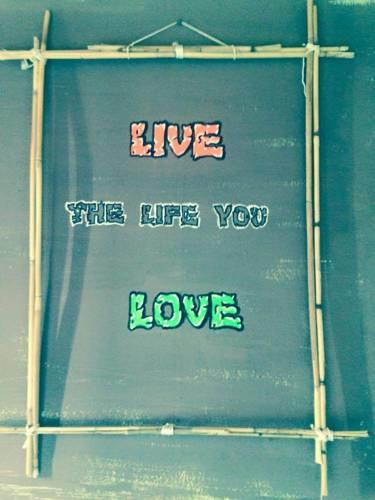 LIVE
THE LIFE YOU
LOVE